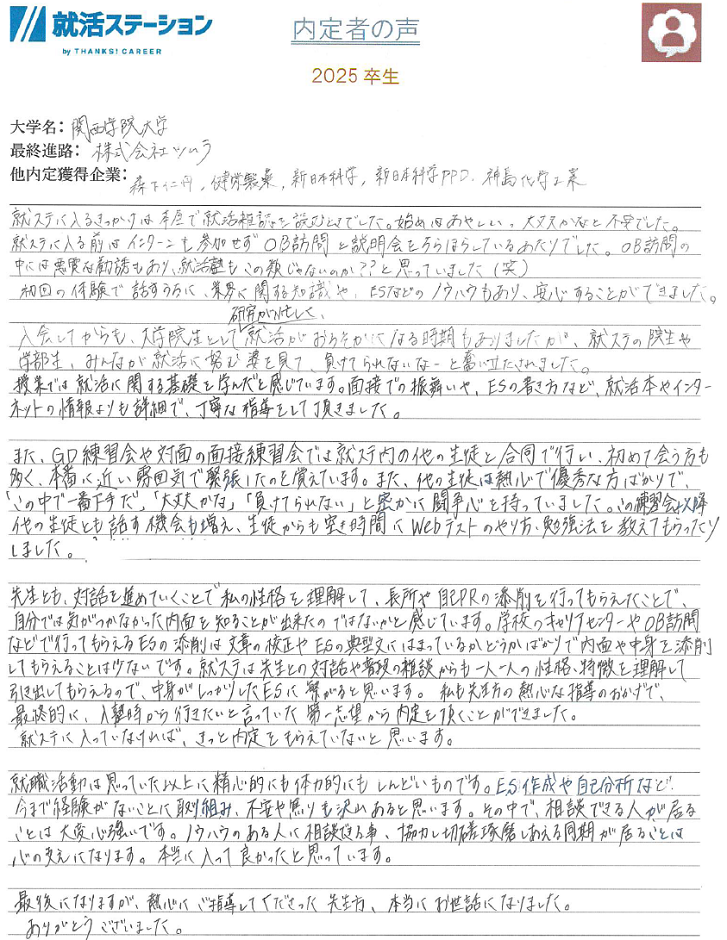 就活ステーション
by THANKS! CAREER
内定者の声
2025 卒生
大学名: 関西学院大学
最終進路: 株式会社ツムラ
他内定獲得企業: 森下仁丹, 健栄製薬, 新日本科学, 新日本科学PPD. 神島化学工業
就ステに入るきっかけは本屋で就活雑誌を読むことでした。始めはあやしいっ 大丈夫かなと不安でした。
就ステに入る前はインターンも参加せずOB訪問と説明会をちらほらしているあたりでした。OB訪問の
中には悪質な勧誘もあり、就活塾もこの類じゃないのか??と思っていました(笑)
初回の体験で話すうちに、業界に関する知識や、ESなどのノウハウもあり、安心することができました。
研究が忙しく、
入会してからも、大学院生として就活がおろそかになる時期もありましたが、就ステの院生や
学部生、みんなが就活に努む姿を見て、負けてられないなーと奮い立たされました。
授業では就活に関する基礎を学んだと感じています。面接での振舞いや、ESの書き方など、就活本やインター
ネットの情報よりも詳細で、丁寧な指導をして頂きました。
また、GD練習会や対面の面接練習会では就ステ内の他の生徒と合同で行い、初めて会う方も
多く、本番に近い雰囲気で緊張したのを覚えています。また、他の生徒は熱心で優秀な方ばかりで、
「この中で一番下手だ」、「大丈夫かな」「負けてられない」と密かに闘争心を持っていました。この練習会以降
他の生徒とも話す機会も増え、生徒からも空き時間にWebテストのやり方、勉強法を教えてもらったり
しました。
先生とも、対話を進めていくことで私の性格を理解して、長所や自己PRの添削を行ってもらえたことで、
自分では気がつかなかった内面を知ることが出来たのではないかと感じています。学校のキャリアセンターやOB訪問
などで行ってもらえるESの添削は文章の校正やESの典型文にはまっているかどうかばかりで内面や中身を添削
してもらえることは少ないです。就ステは先生との対話や普段の雑談からも一人一人の性格、特徴を理解して
引き出してもらえるので、中身がしっかりしたESに繋がると思います。私も先生方の熱心な指導のおかげで、
最終的に、入塾時から行きたいと言っていた第一志望から内定を頂くことができました。
就ステに入っていなければ、きっと内定をもらえていないと思います。
就職活動は思っていた以上に精神的にも体力的にもしんどいものです。ES作成や自己分析など、
今まで経験がないことに取り組み、不安や焦りも沢山あると思います。その中で、相談できる人が居る
ことは大変心強いです。ノウハウのある人に相談できる事、協力し切磋琢磨しあえる同期が居ることは
心の支えになります。本当に入って良かったと思っています。
最後になりますが、熱心にご指導してくださった先生方、本当にお世話になりました。
ありがとうございました。